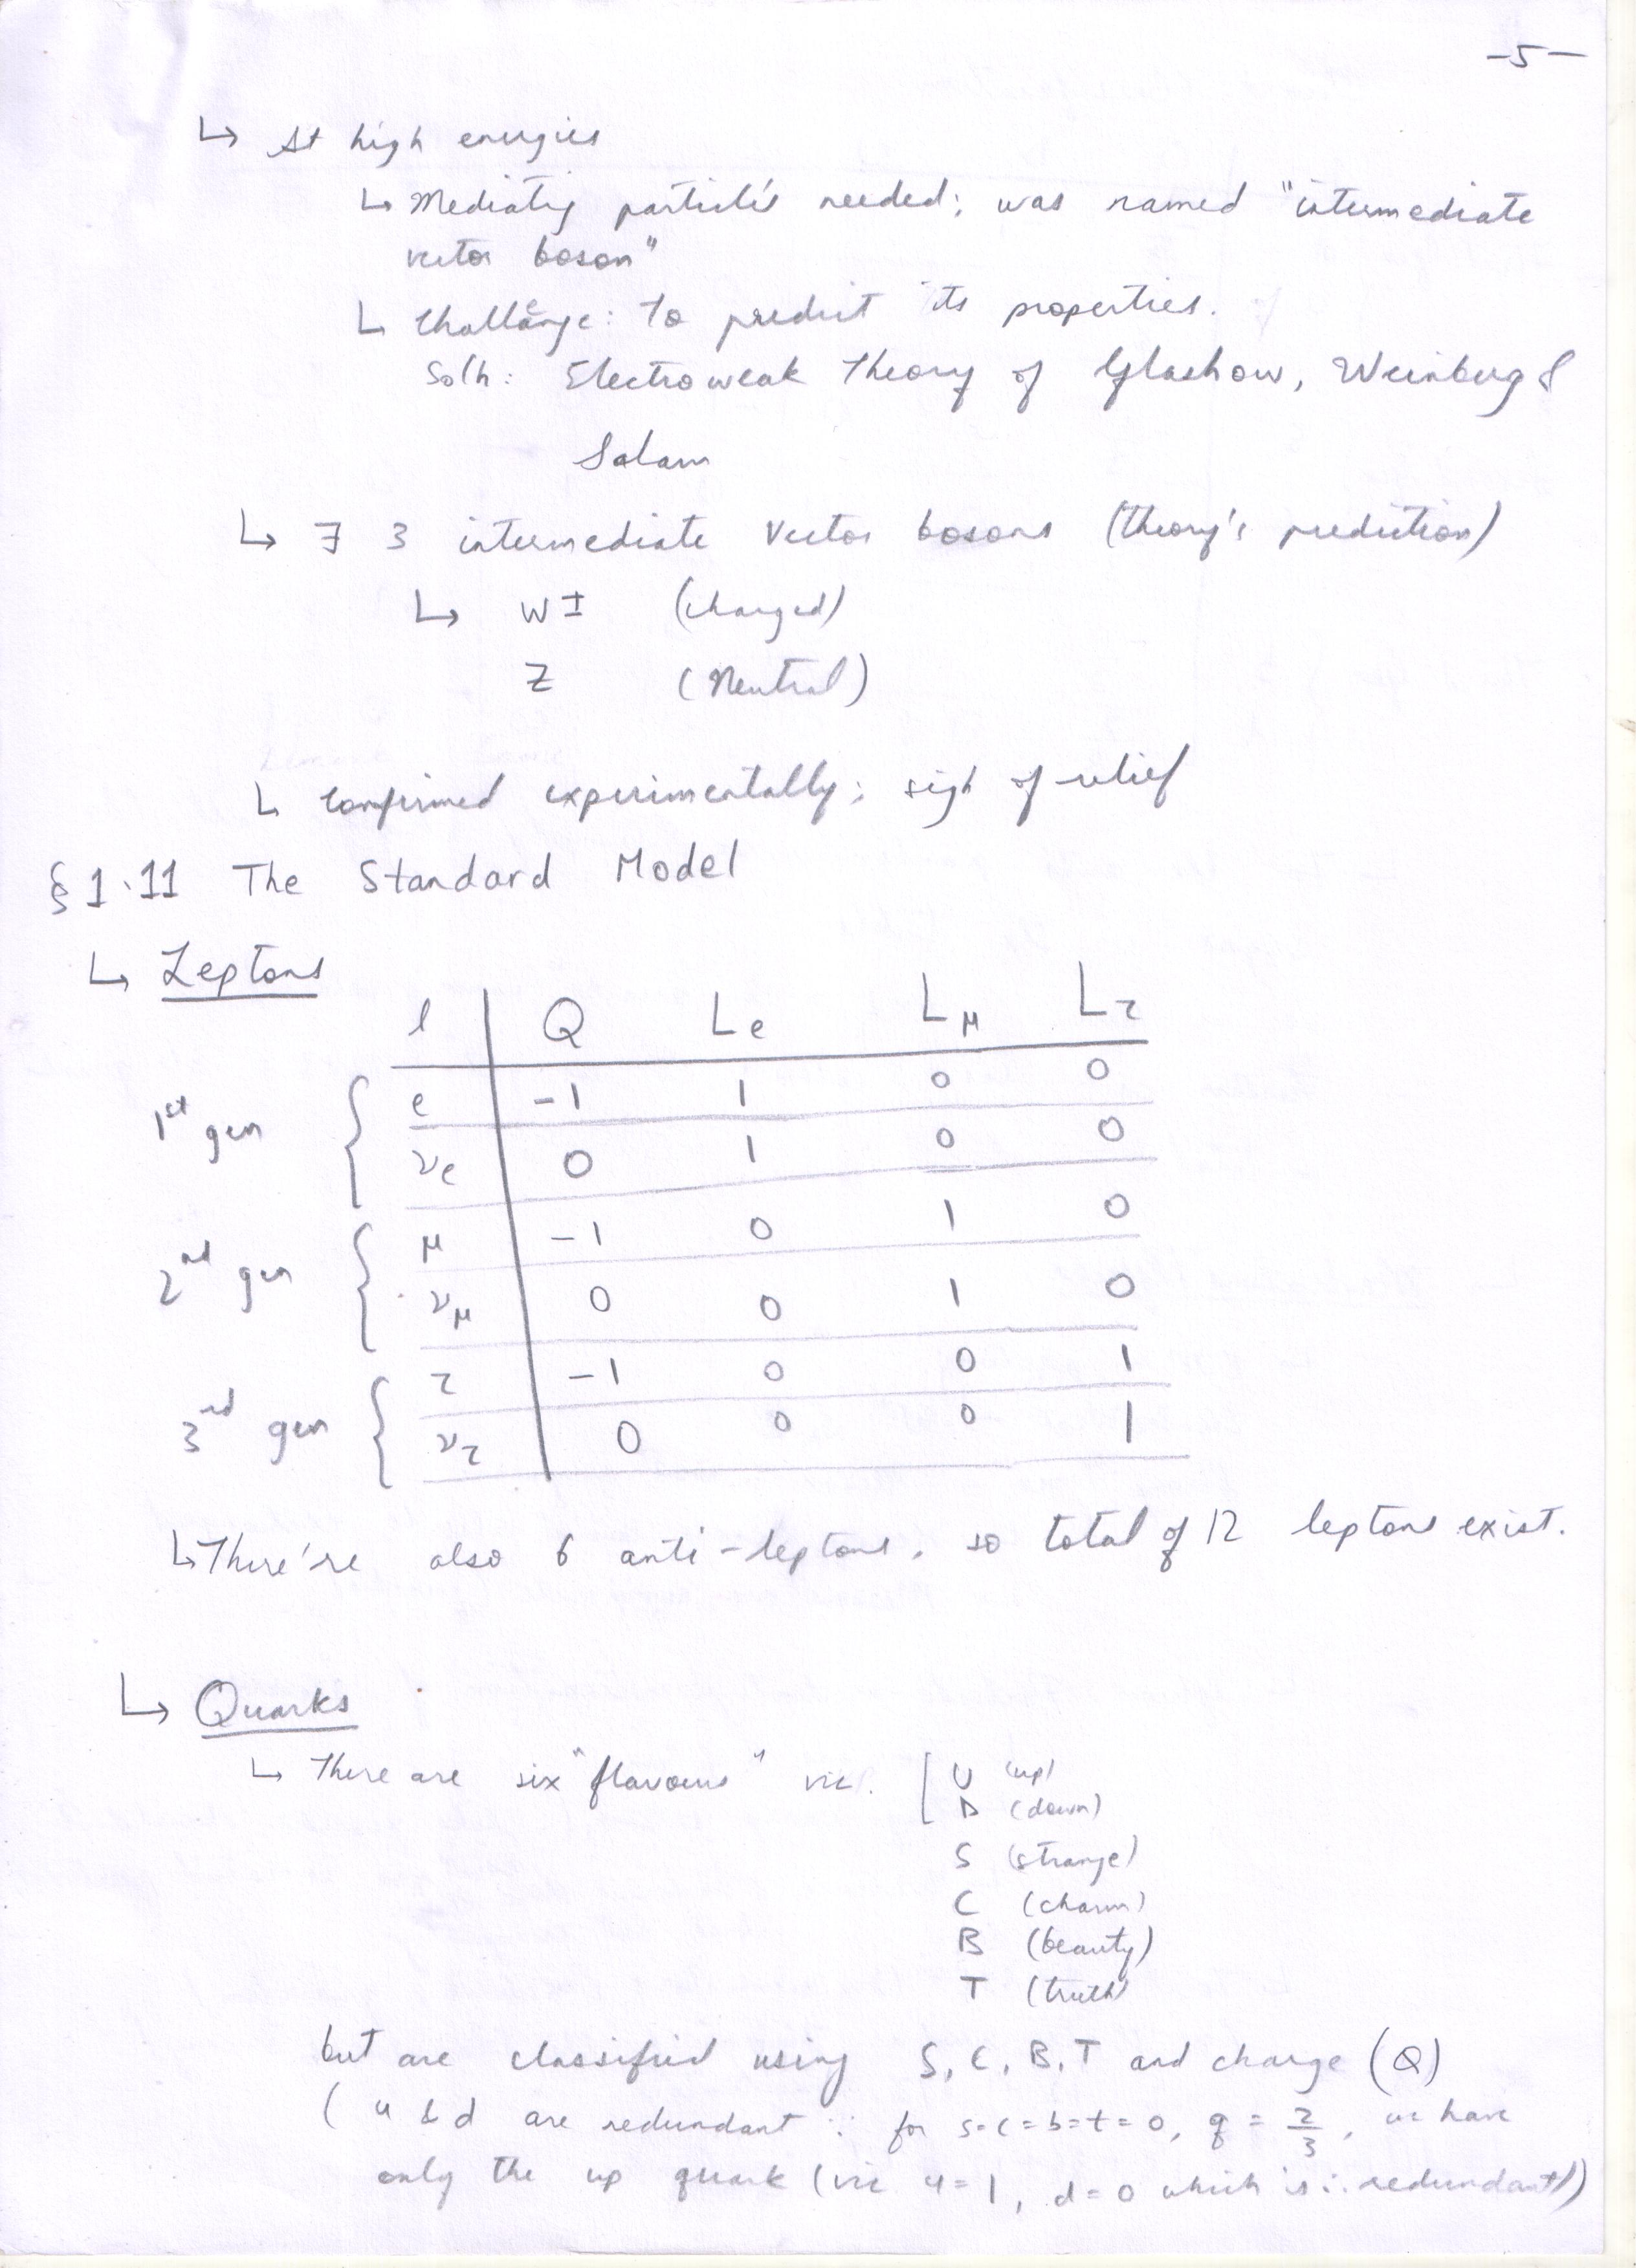 -5-
↳ At high energies
↳ Mediating particle's needed; was named "intermediate
vector boson"
↳ Challenge: To predict its properties.
Soln: Electroweak Theory of Glashow, Weinberg &
Salam
↳ ∃ 3 intermediate vector bosons (theory's prediction)
↳ W± (charged)
Z (Neutral)
↳ Confirmed experimentally; sigh of relief
§ 1.11 The Standard Model
↳ Leptons
l Q Le Lμ Lτ
1st gen { e -1 1 0 0
νe 0 1 0 0
2nd gen { μ -1 0 1 0
νμ 0 0 1 0
3rd gen { τ -1 0 0 1
ντ 0 0 0 1
↳ There're also 6 anti-leptons, so total of 12 leptons exist.
↳ Quarks
↳ There are six "flavours" viz. [ U (up)
D (down)
S (strange)
C (charm)
B (beauty)
T (truth)
but are classified using S, C, B, T and charge (Q)
( u & d are redundant ∵ for s=c=b=t=0, q = 2/3, we have
only the up quark (viz u=1, d=0 which is ∴ redundant))